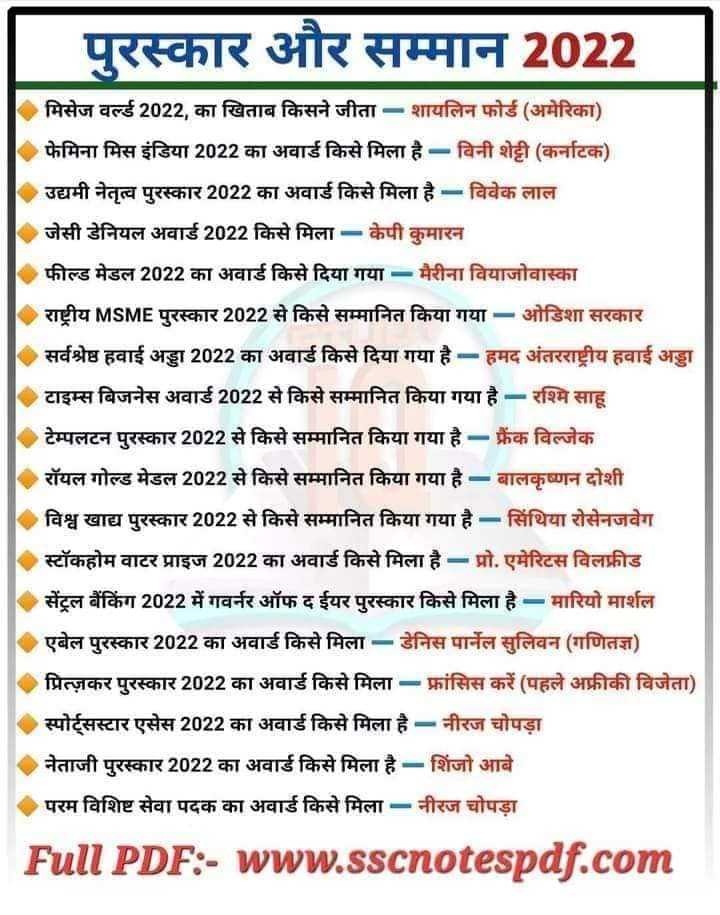 पुरस्कार और सम्मान 2022
मिसेज वर्ल्ड 2022, का खिताब किसने जीता — शायलिन फोर्ड (अमेरिका)
फेमिना मिस इंडिया 2022 का अवार्ड किसे मिला है — विनी शेट्टी (कर्नाटक)
उद्यमी नेतृत्व पुरस्कार 2022 का अवार्ड किसे मिला है — विवेक लाल
जेसी डेनियल अवार्ड 2022 किसे मिला — केपी कुमारन
फील्ड मेडल 2022 का अवार्ड किसे दिया गया — मैरीना वियाजोवास्का
राष्ट्रीय MSME पुरस्कार 2022 से किसे सम्मानित किया गया — ओडिशा सरकार
सर्वश्रेष्ठ हवाई अड्डा 2022 का अवार्ड किसे दिया गया है — हमद अंतरराष्ट्रीय हवाई अड्डा
टाइम्स बिजनेस अवार्ड 2022 से किसे सम्मानित किया गया है — रश्मि साहू
टेम्पलटन पुरस्कार 2022 से किसे सम्मानित किया गया है — फ्रैंक विल्जेक
रॉयल गोल्ड मेडल 2022 से किसे सम्मानित किया गया है — बालकृष्णन दोशी
विश्व खाद्य पुरस्कार 2022 से किसे सम्मानित किया गया है — सिंथिया रोसेनजवेग
स्टॉकहोम वाटर प्राइज 2022 का अवार्ड किसे मिला है — प्रो. एमेरिटस विलफ्रीड
सेंट्रल बैंकिंग 2022 में गवर्नर ऑफ द ईयर पुरस्कार किसे मिला है — मारियो मार्शल
एबेल पुरस्कार 2022 का अवार्ड किसे मिला — डेनिस पार्नेल सुलिवन (गणितज्ञ)
प्रित्ज़कर पुरस्कार 2022 का अवार्ड किसे मिला — फ्रांसिस करें (पहले अफ्रीकी विजेता)
स्पोर्ट्सस्टार एसेस 2022 का अवार्ड किसे मिला है — नीरज चोपड़ा
नेताजी पुरस्कार 2022 का अवार्ड किसे मिला है — शिंजो आबे
परम विशिष्ट सेवा पदक का अवार्ड किसे मिला — नीरज चोपड़ा
Full PDF:- www.sscnotespdf.com